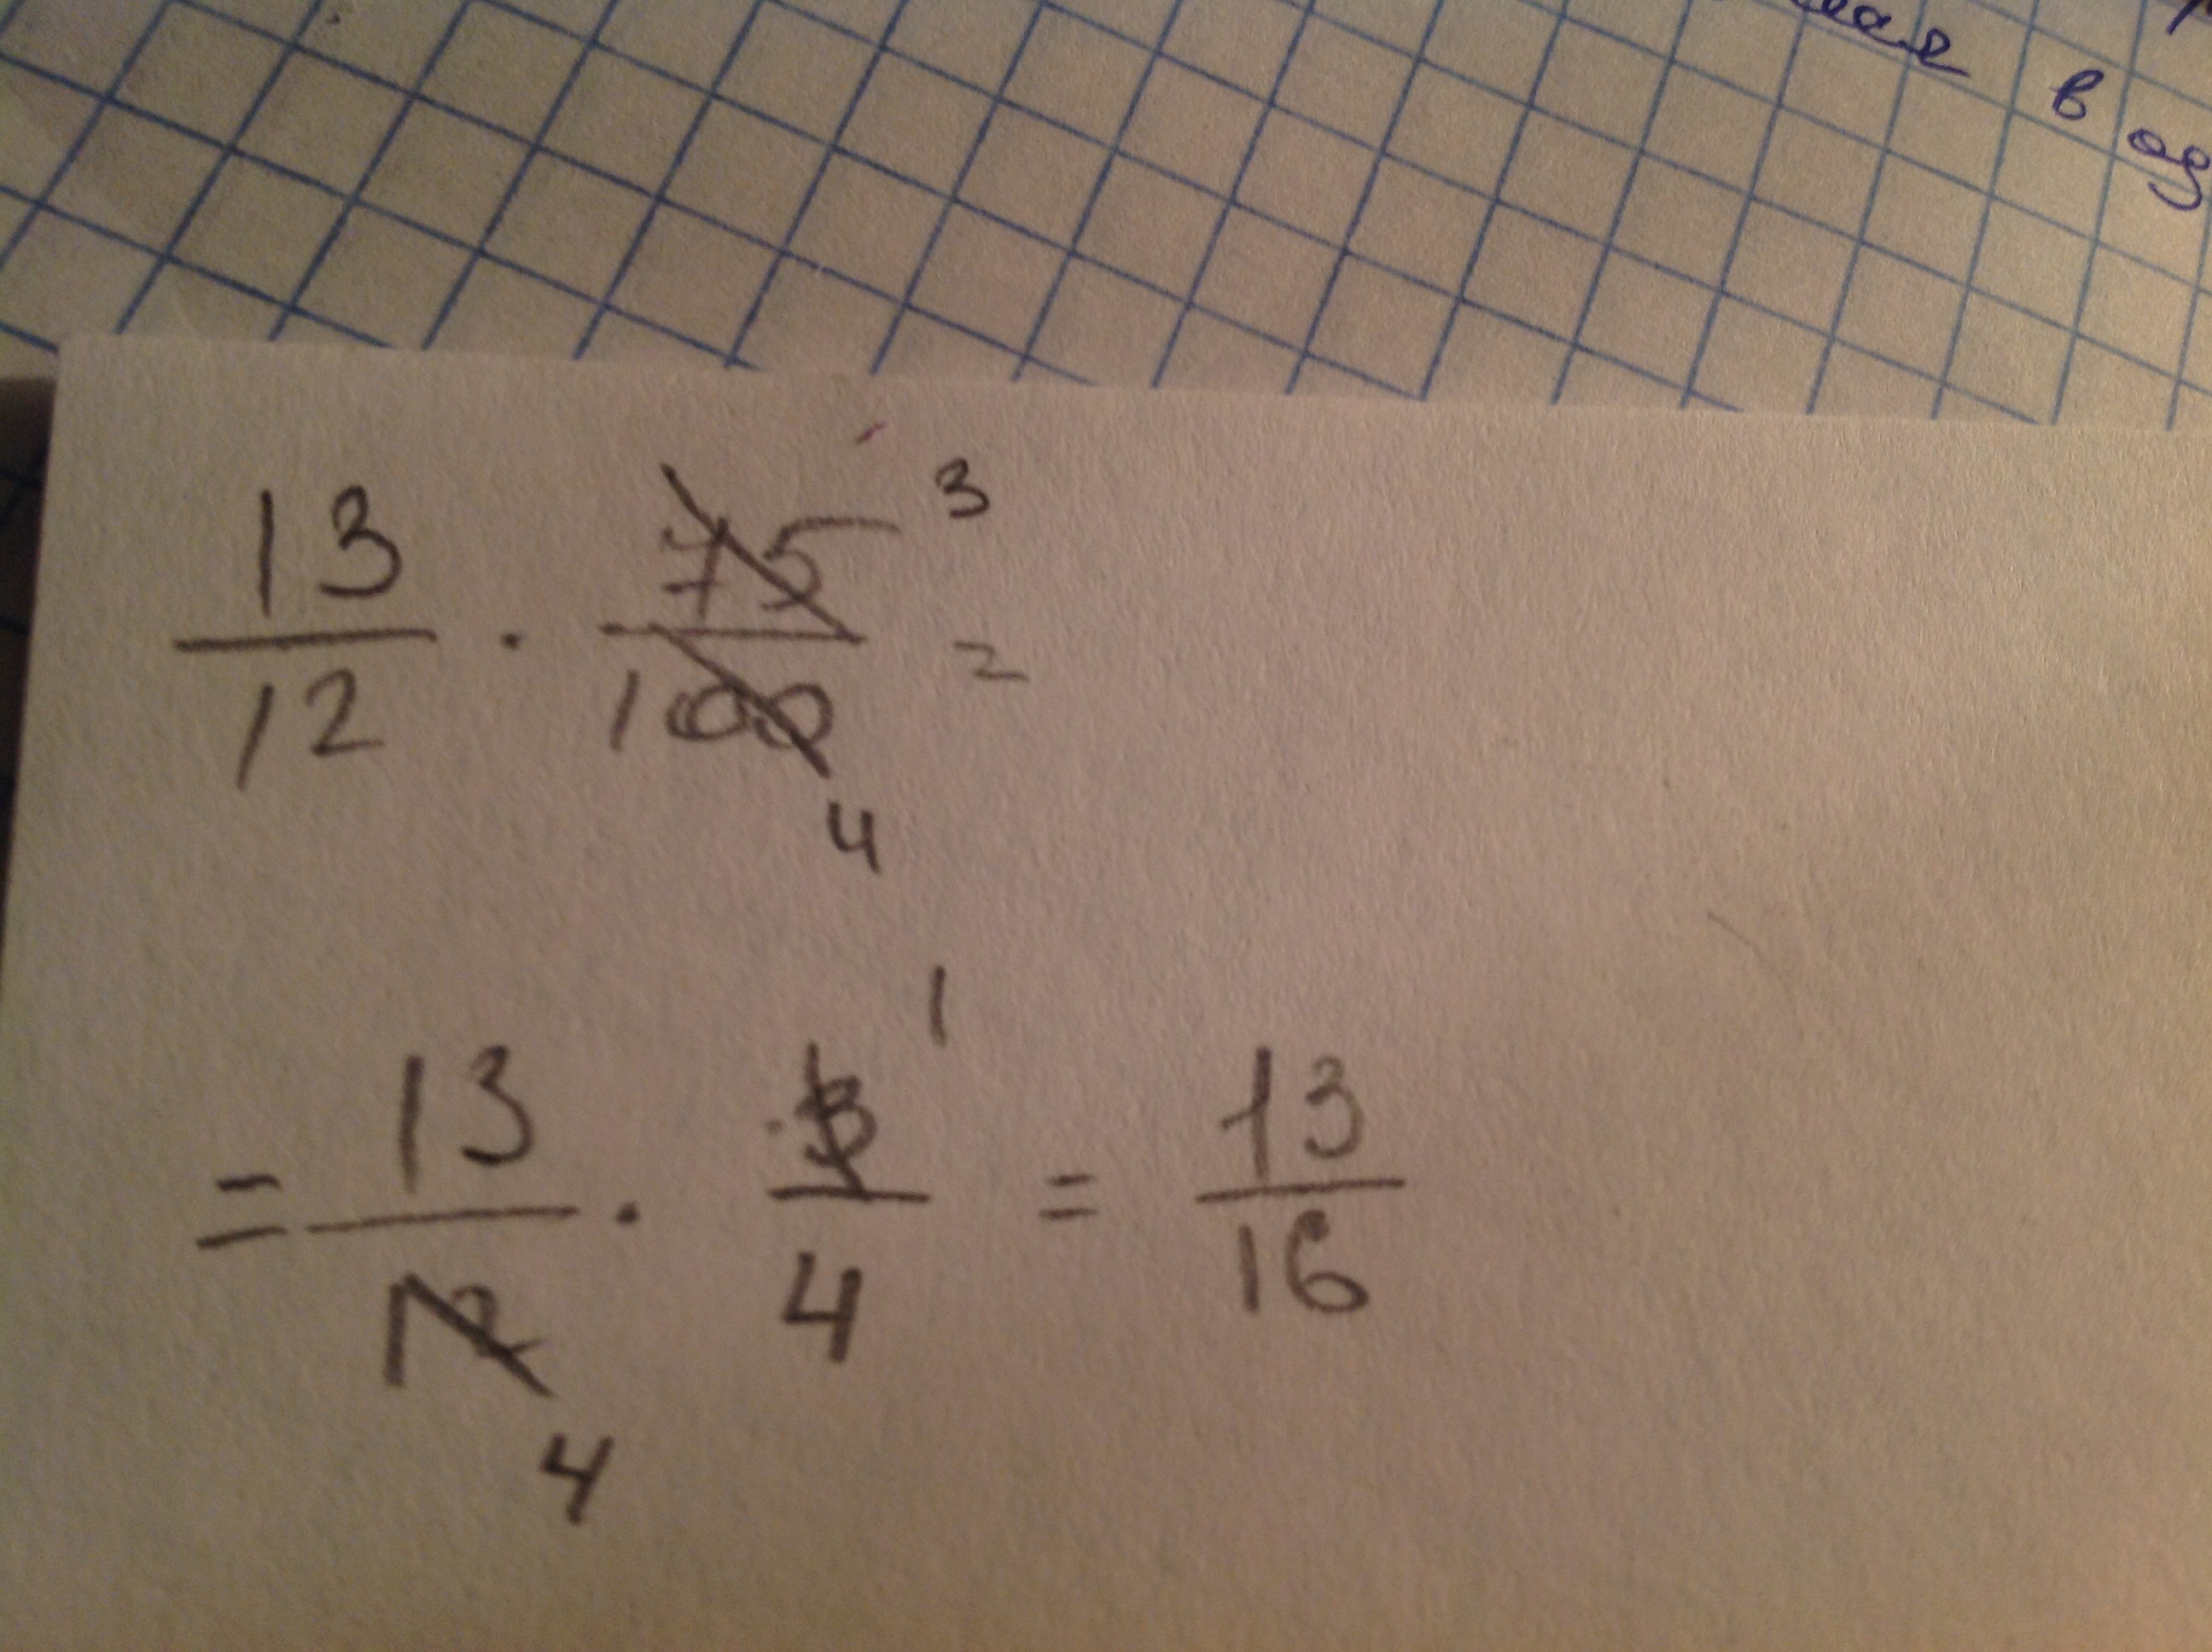 в
13/12 · 75/100 = 3 4
= 13/12 · 3/4 = 13/16 1 4